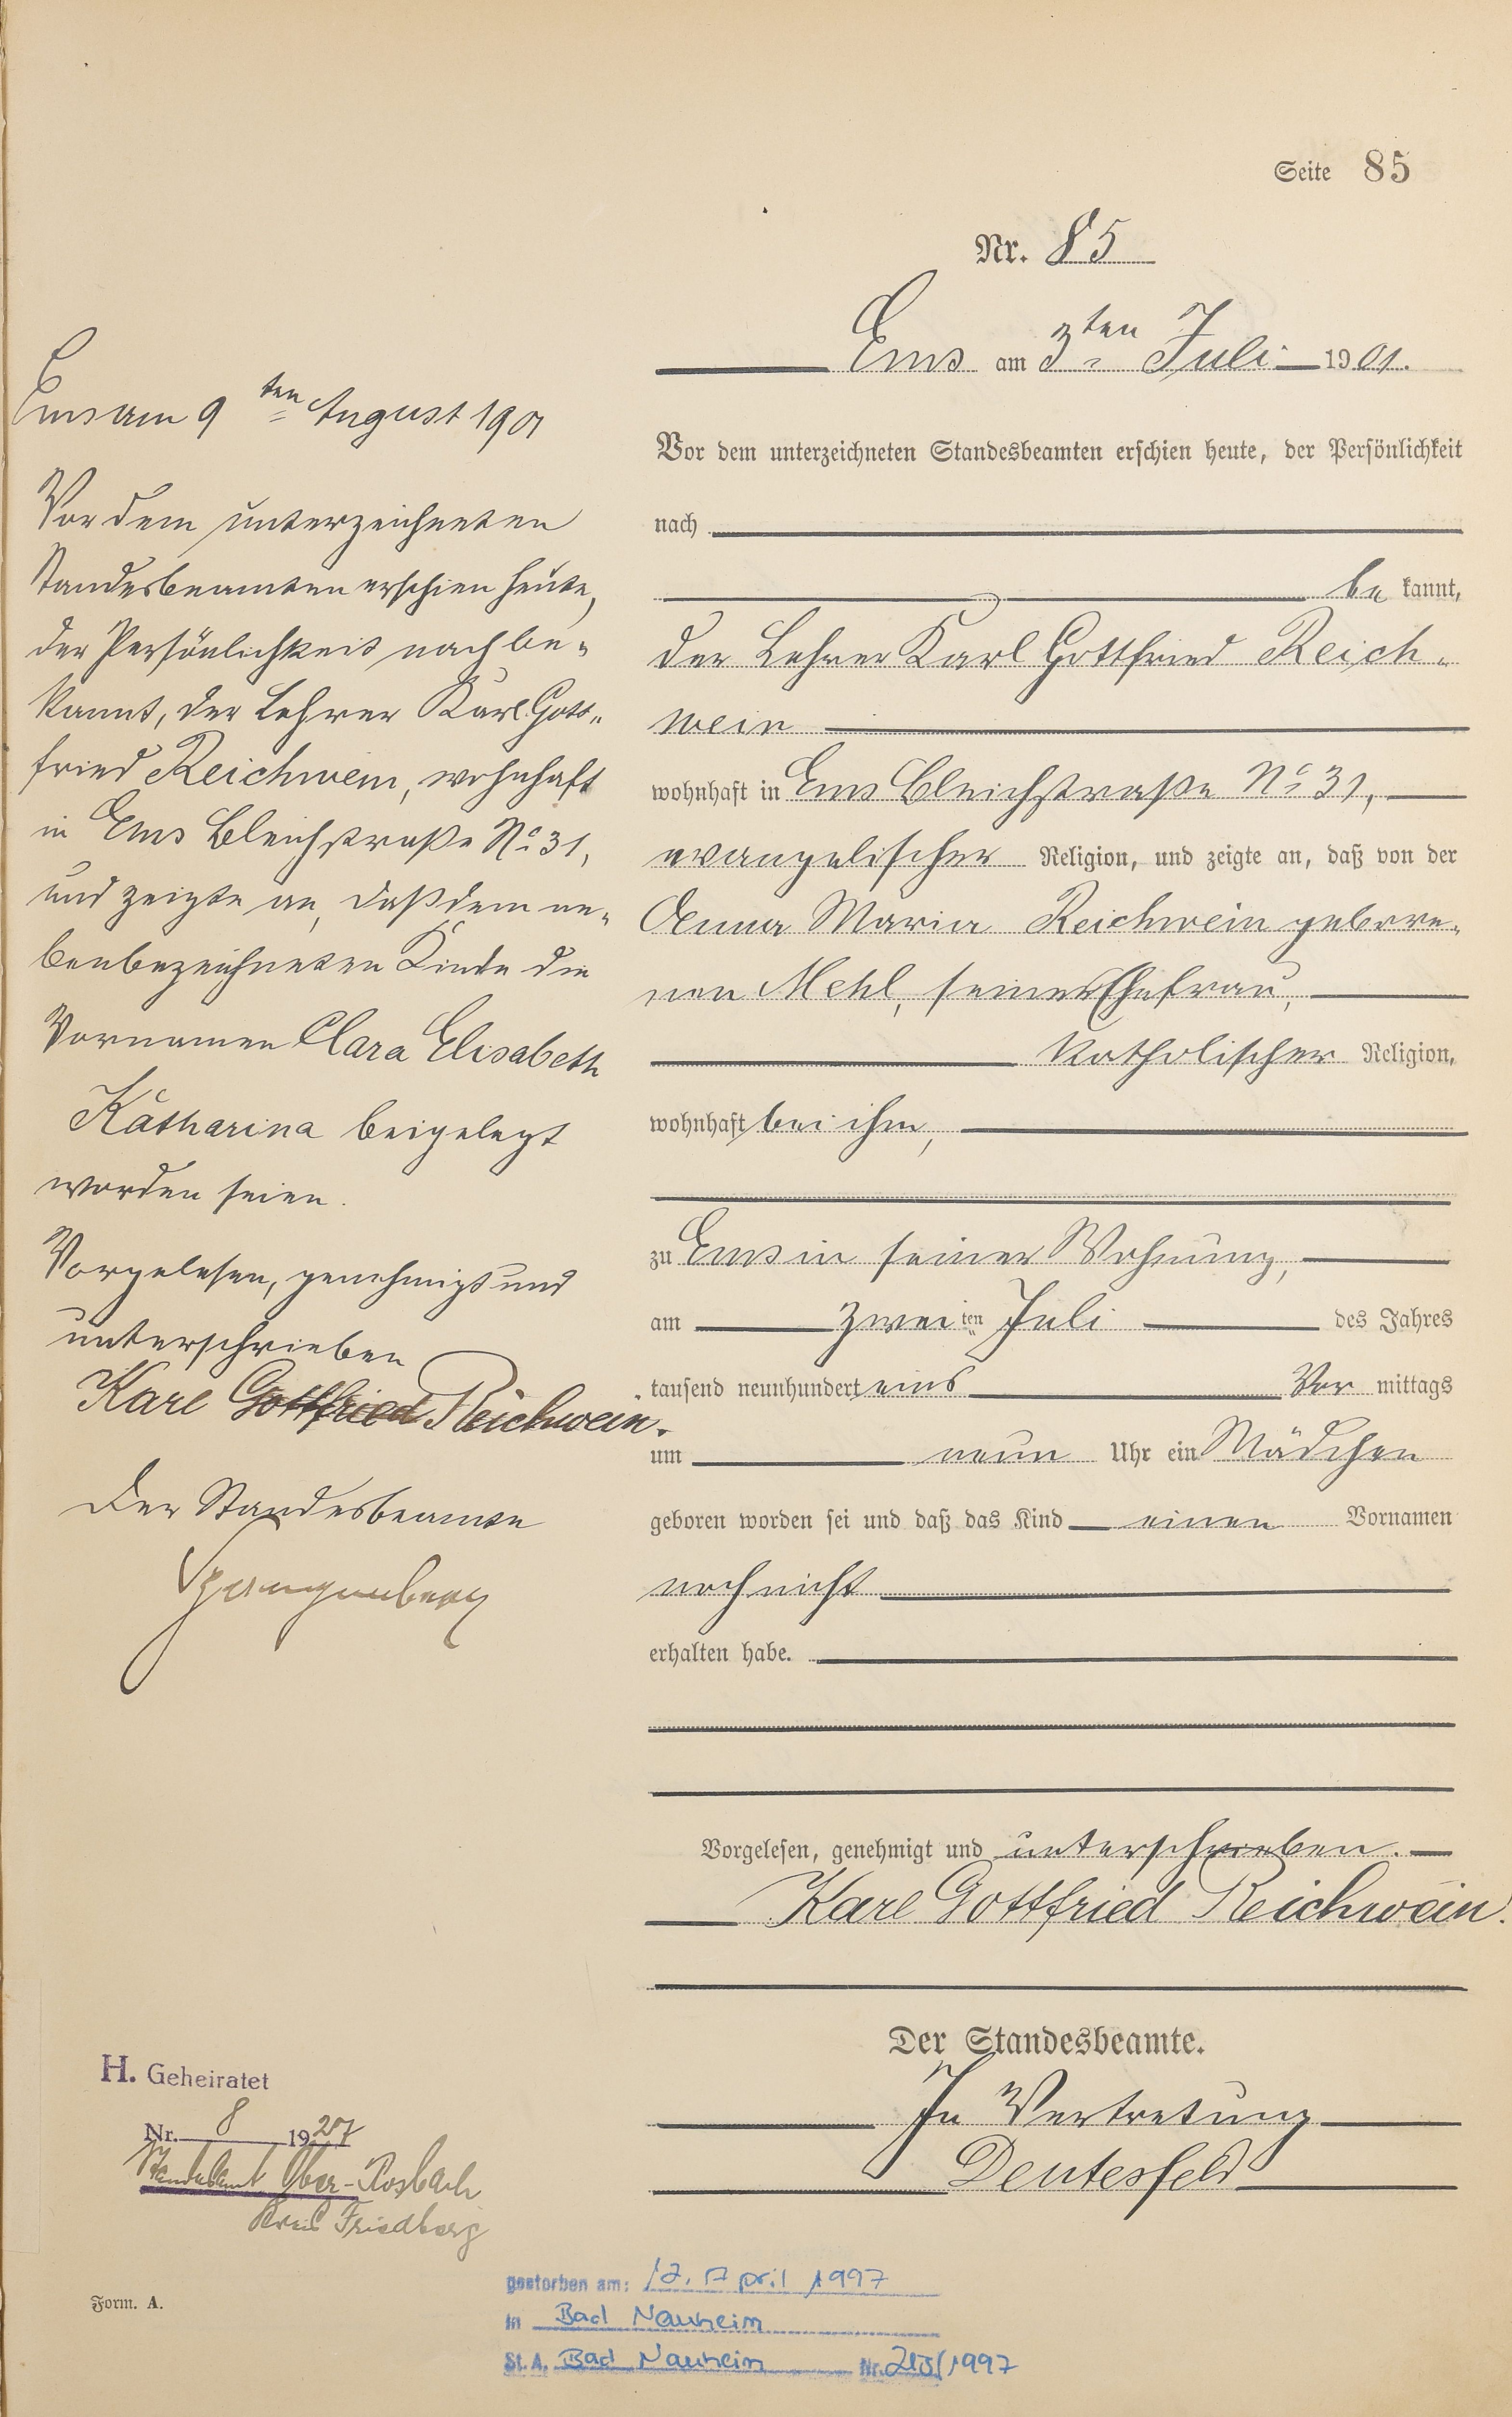 Seite 85
Nr. 85
Ems am 3ten Juli 1901.
Vor dem unterzeichneten Standesbeamten erschien heute, der Persönlichkeit
nach
be kannt,
der Lehrer Karl Gottfried Reich-
wein
wohnhaft in Ems Bleichstraße No 31,
evangelischer Religion, und zeigte an, daß von der
Anna Maria Reichwein gebore-
nen Mehl, seiner Ehefrau,
katholischer Religion,
wohnhaft bei ihm,
zu Ems in seiner Wohnung,
am zweiten Juli des Jahres
tausend neunhundert eins Vor mittags
um neun Uhr ein Mädchen
geboren worden sei und daß das Kind einen Vornamen
noch nicht
erhalten habe.
Vorgelesen, genehmigt und unterschrieben.
Karl Gottfried Reichwein.
Der Standesbeamte.
In Vertretung
Deutesfeld
Ems am 9ten August 1901
Vor dem unterzeichneten
Standesbeamten erschien heute,
der Persönlichkeit nach be-
kannt, der Lehrer Karl Gott-
fried Reichwein, wohnhaft
in Ems Bleichstraße No 31,
und zeigte an, daß dem ne-
benbezeichneten Kinde die
Vornamen Clara Elisabeth
Katharina beigelegt
worden seien.
Vorgelesen, genehmigt und
unterschrieben
Karl Gottfried Reichwein.
Der Standesbeamte
Spangenberg
H. Geheiratet
Nr. 8 1927
Standesamt Ober-Rosbach
Kreis Friedberg
Form. A.
gestorben am: 12. April 1997
in Bad Nauheim
St. A. Bad Nauheim Nr. /1997